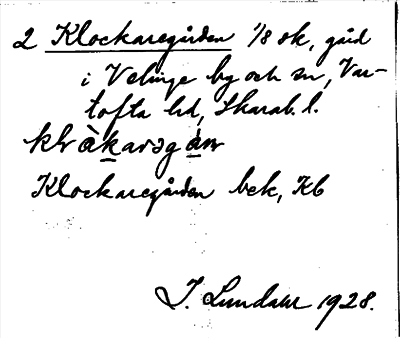 2 Klockaregården 1/8 sk, gård
i Velinge by och sn, Var-
tofta hd, Skarab. l.
klòkarəgɑ̀ɳ
Klockaregården bek, Kb
I. Lundahl 1928.